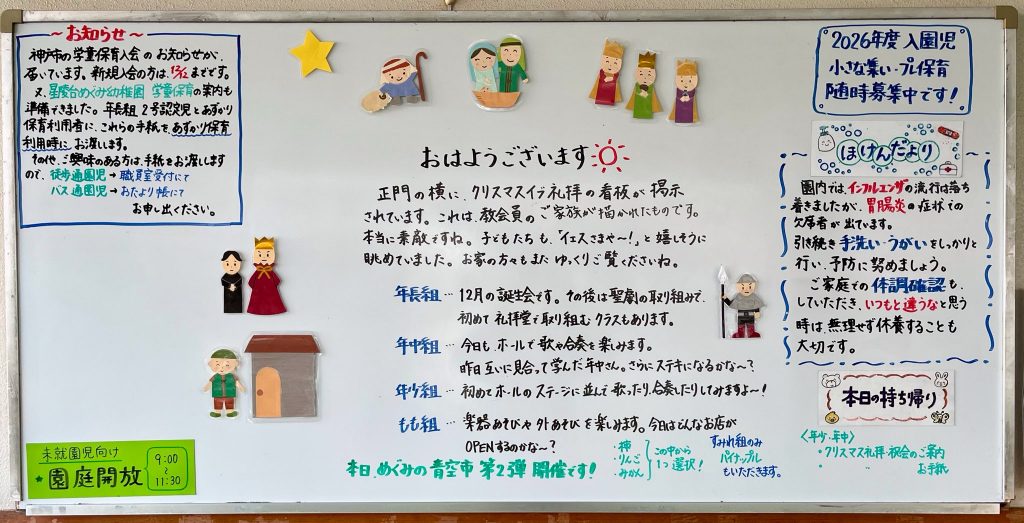 ～お知らせ～
神戸市の学童保育入会のお知らせが、
届いています。新規入会の方は、12/12までです。
又、星陵台めぐみ幼稚園 学童保育の案内も
準備できました。年長組 2号認定児とあずかり
保育利用者に、これらの手紙を、あずかり保育
利用時にお渡します。
その他、ご興味のある方は、手紙をお渡ししますので、
徒歩通園児→職員室受付にて
バス通園児→おたより帳にて
お申し出ください。
おはようございます
正門の横に、クリスマスイブ礼拝の看板が掲示
されています。これは、教会員のご家族が描かれたものです。
本当に素敵ですね。子どもたちも、「イエスさまや〜!」と嬉しそうに
眺めていました。お家の方々もまたゆっくりご覧くださいね。
年長組…12月の誕生会です。その後は聖劇の取り組みで、
初めて礼拝堂で取り組むクラスもあります。
年中組…今日も、ホールで歌や合奏を楽しみます。
昨日互いに見合って学んだ年中さん。さらにステキになるかな〜?
年少組…初めてホールのステージに並んで歌ったり、合奏したりしてみますよ〜!
もも組…楽器あそびや外あそびを楽しみます。今日はどんなお店が
OPENするのかな〜?
本日、めぐみの青空市 第2弾 開催です!
・柿
・りんご
・みかん
この中から
1つ選択!
すみれ組のみ
パイナップル
もいただきます。
未就園児向け
★園庭開放
9:00
〜
11:30
2026年度 入園児
小さな集い・プレ保育
随時募集中です!
ほけんだより
園内では、インフルエンザの流行は落ち
着きましたが、胃腸炎の症状での
欠席者が出ています。
引き続き 手洗い・うがいをしっかりと
行い、予防に努めましょう。
ご家庭での体調確認も、
していただき、いつもと違うなと思う
時は、無理せず休養することも
大切です。
本日の持ち帰り
〈年少・年中〉
・クリスマス礼拝・祝会のご案内
・　〃　お手紙